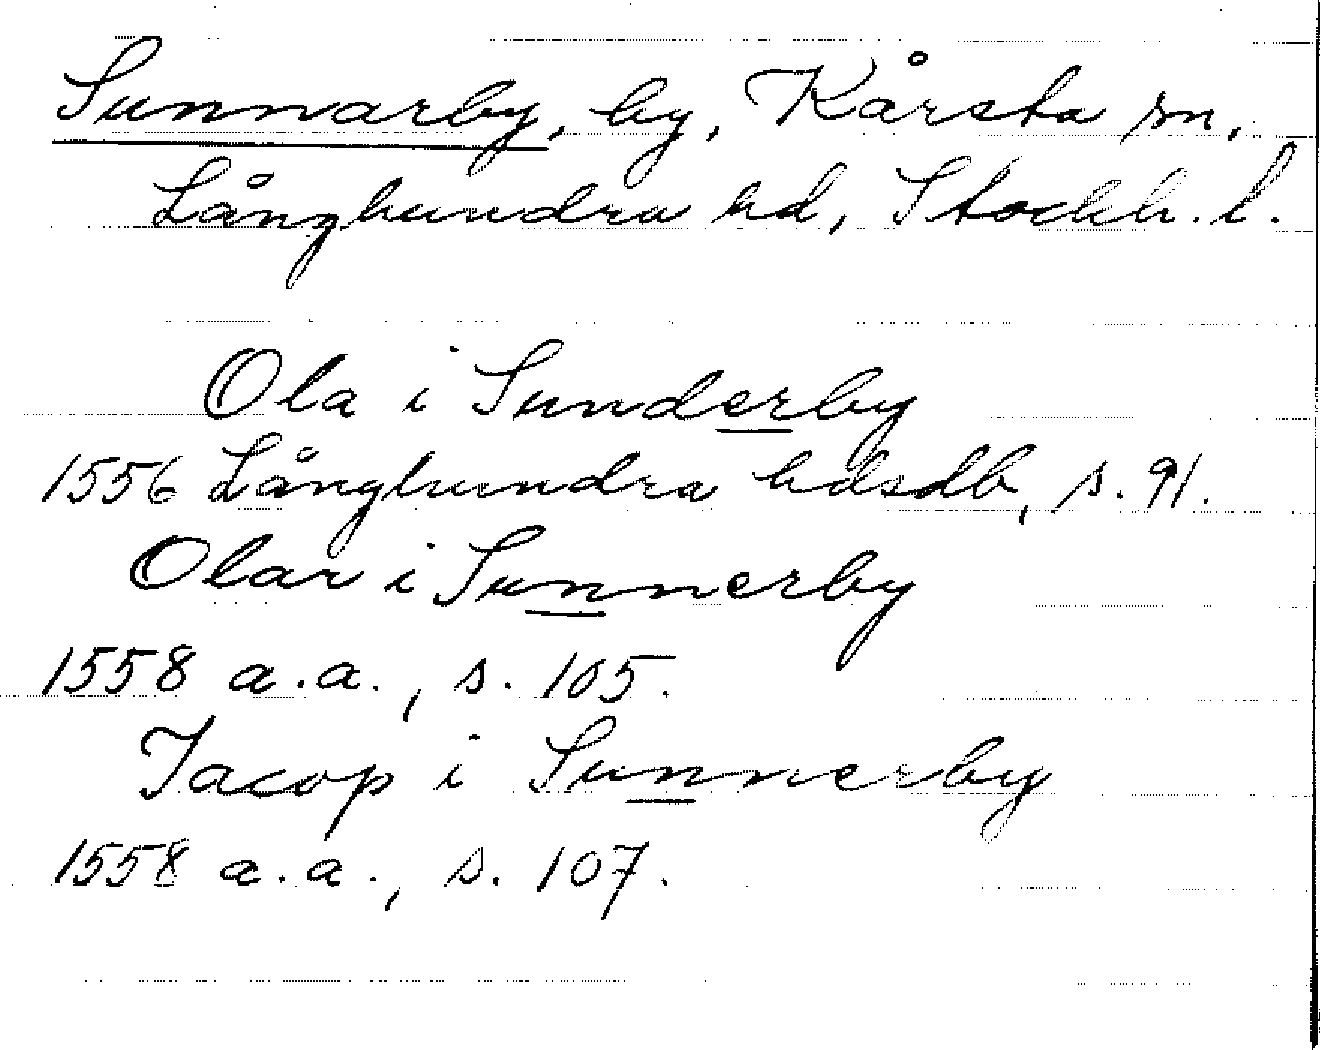 Sunnarby, by, Kårsta sn,
Långhundra hd, Stockh. l.
Ola i Sunderby
1556 Långhundra hdsdb, s. 91.
Olar i Sunnerby
1558 a.a., s. 105.
Jacop i Sunnerby
1558 a.a., s. 107.